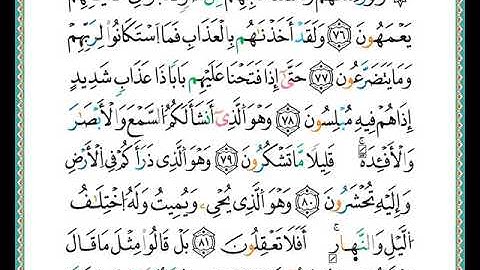 يَعْمَهُونَ ٧٦ وَلَقَدْ أَخَذْنَٰهُم بِالْعَذَابِ فَمَا اسْتَكَانُوا لِرَبِّهِمْ
وَمَا يَتَضَرَّعُونَ ٧٧ حَتَّىٰ إِذَا فَتَحْنَا عَلَيْهِم بَابًا ذَا عَذَابٍ شَدِيدٍ
إِذَا هُمْ فِيهِ مُبْلِسُونَ ٧٨ وَهُوَ الَّذِي أَنشَأَ لَكُمُ السَّمْعَ وَالْأَبْصَارَ
وَالْأَفْئِدَةَ قَلِيلًا مَّا تَشْكُرُونَ ٧٩ وَهُوَ الَّذِي ذَرَأَكُمْ فِي الْأَرْضِ
وَإِلَيْهِ تُحْشَرُونَ ٨٠ وَهُوَ الَّذِي يُحْيِۦ وَيُمِيتُ وَلَهُ اخْتِلَٰفُ
الَّيْلِ وَالنَّهَارِ أَفَلَا تَعْقِلُونَ ٨١ بَلْ قَالُوا مِثْلَ مَا قَالَ